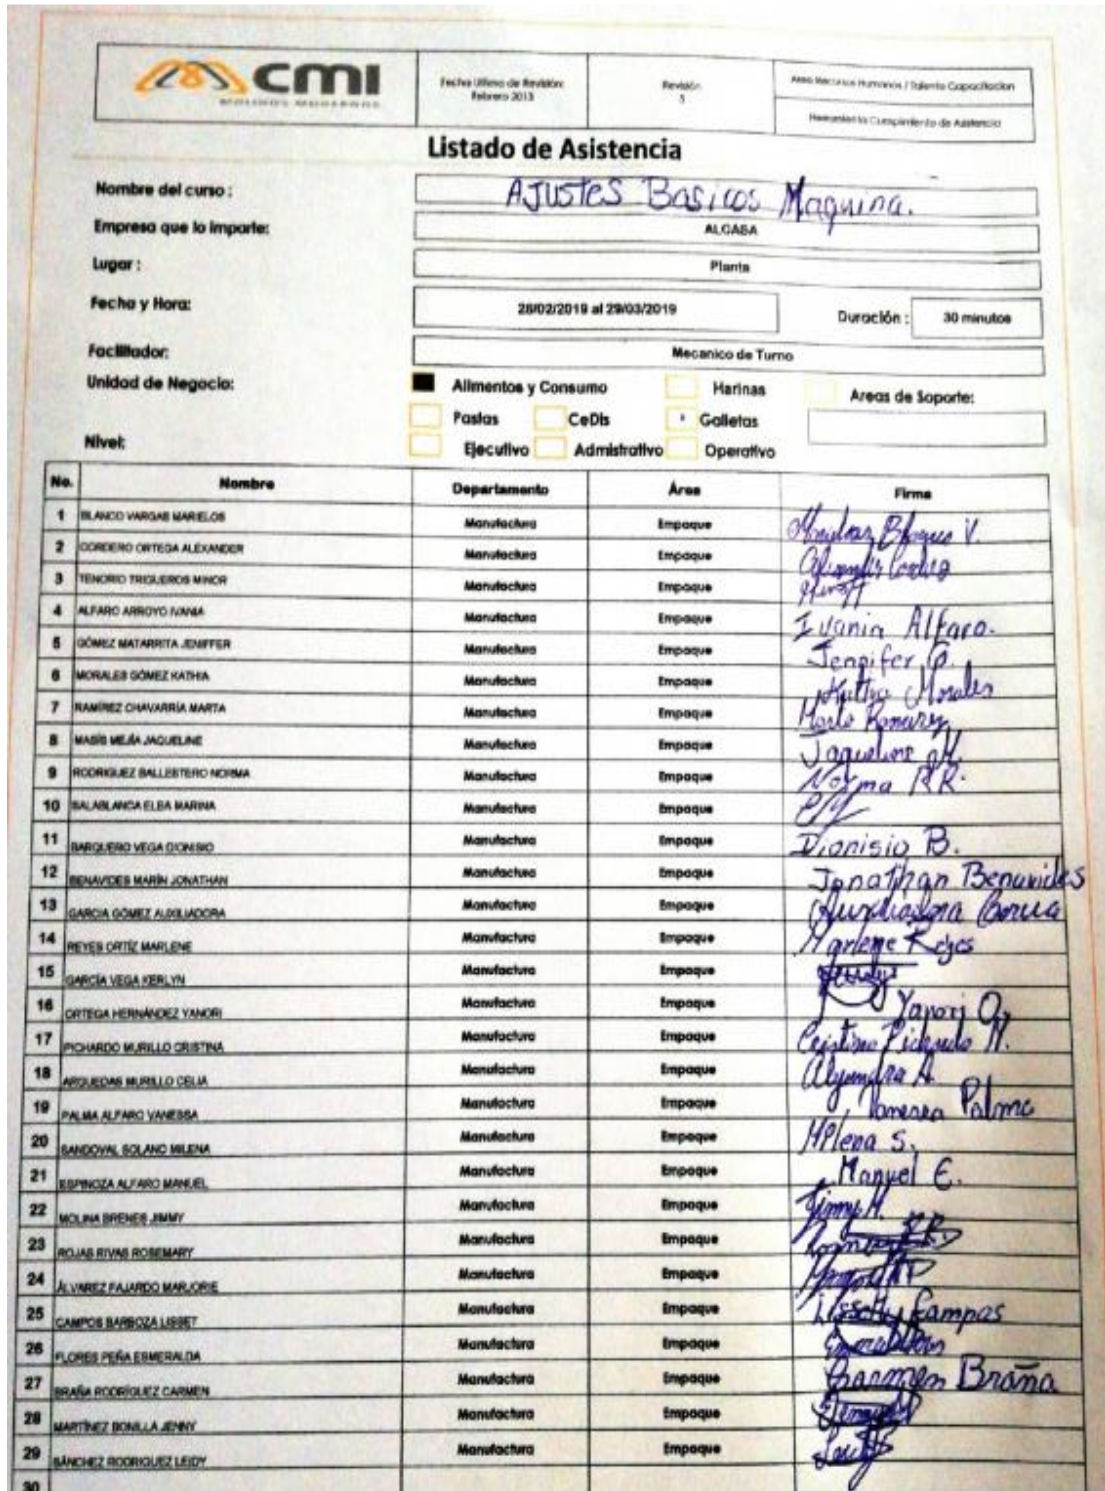 cmi
MOLINOS MODERNOS
Fecha Ultima de Revisión:
Febrero 2013
Revisión
3
Area Recursos Humanos / Talento Capacitacion
Herramienta Cumplimiento de Asistencia
Listado de Asistencia
Nombre del curso : AJUSTES Basicos Maquina.
Empresa que lo imparte: ALCASA
Lugar : Planta
Fecha y Hora: 28/02/2019 al 29/03/2019 Duración : 30 minutos
Facilitador: Mecanico de Turno
Unidad de Negocio: Alimentos y Consumo Harinas Areas de Soporte:
Pastas CeDis Galletas
Nivel: Ejecutivo Admistrativo Operativo
No. Nombre Departamento Área Firma
1 BLANCO VARGAS MARIELOS Manufactura Empaque
2 CORDERO ORTEGA ALEXANDER Manufactura Empaque
3 TENORIO TRIGUEROS MINOR Manufactura Empaque
4 ALFARO ARROYO IVANIA Manufactura Empaque Ivania Alfaro.
5 GÓMEZ MATARRITA JENIFFER Manufactura Empaque Jennifer G.
6 MORALES GÓMEZ KATHIA Manufactura Empaque Kattya Morales
7 RAMÍREZ CHAVARRÍA MARTA Manufactura Empaque Marta Ramirez
8 MASÍS MEJÍA JAQUELINE Manufactura Empaque Jaqueline M.
9 RODRIGUEZ BALLESTERO NORMA Manufactura Empaque Norma R.R.
10 SALABLANCA ELBA MARINA Manufactura Empaque
11 BARQUERO VEGA DIONISIO Manufactura Empaque Dionisio B.
12 BENAVIDES MARÍN JONATHAN Manufactura Empaque Jonathan Benavides
13 GARCIA GÓMEZ AUXILIADORA Manufactura Empaque Auxiliadora Garcia
14 REYES ORTÍZ MARLENE Manufactura Empaque Marlene Reyes
15 GARCÍA VEGA KERLYN Manufactura Empaque
16 ORTEGA HERNÁNDEZ YANORI Manufactura Empaque Yanori O.
17 PICHARDO MURILLO CRISTINA Manufactura Empaque Cristina Pichardo M.
18 ARGUEDAS MURILLO CELIA Manufactura Empaque Alejandra A.
19 PALMA ALFARO VANESSA Manufactura Empaque Vanessa Palma
20 SANDOVAL SOLANO MILENA Manufactura Empaque Milena S.
21 ESPINOZA ALFARO MANUEL Manufactura Empaque Manuel E.
22 MOLINA BRENES JIMMY Manufactura Empaque Jimmy M.
23 ROJAS RIVAS ROSEMARY Manufactura Empaque
24 ÁLVAREZ FAJARDO MARJORIE Manufactura Empaque
25 CAMPOS BARBOZA LISSET Manufactura Empaque Campos
26 FLORES PEÑA ESMERALDA Manufactura Empaque
27 BRAÑA RODRÍGUEZ CARMEN Manufactura Empaque Carmen Braña
28 MARTÍNEZ BONILLA JENNY Manufactura Empaque
29 SÁNCHEZ RODRIGUEZ LEIDY Manufactura Empaque
30